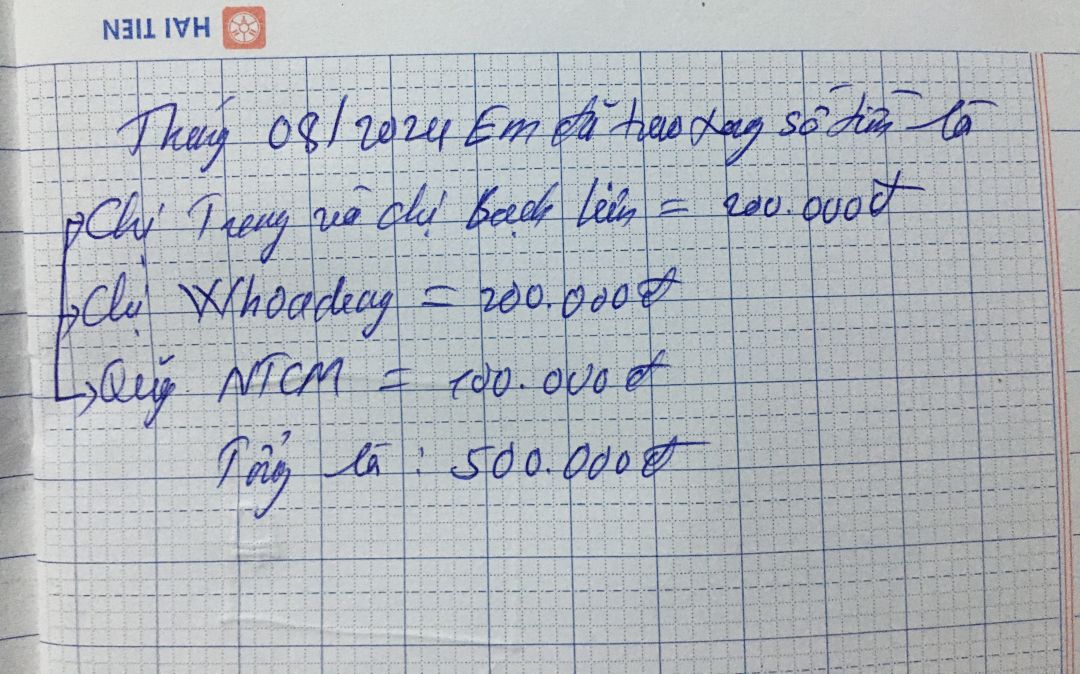 HẢI TIẾN
Tháng 08/2024 Em đã trao xong số tiền là
Chị Trang và chị Bạch Liên = 200.000đ
Chị Whoadeay = 200.000đ
Quỹ NTCM = 100.000đ
Tổng là : 500.000đ